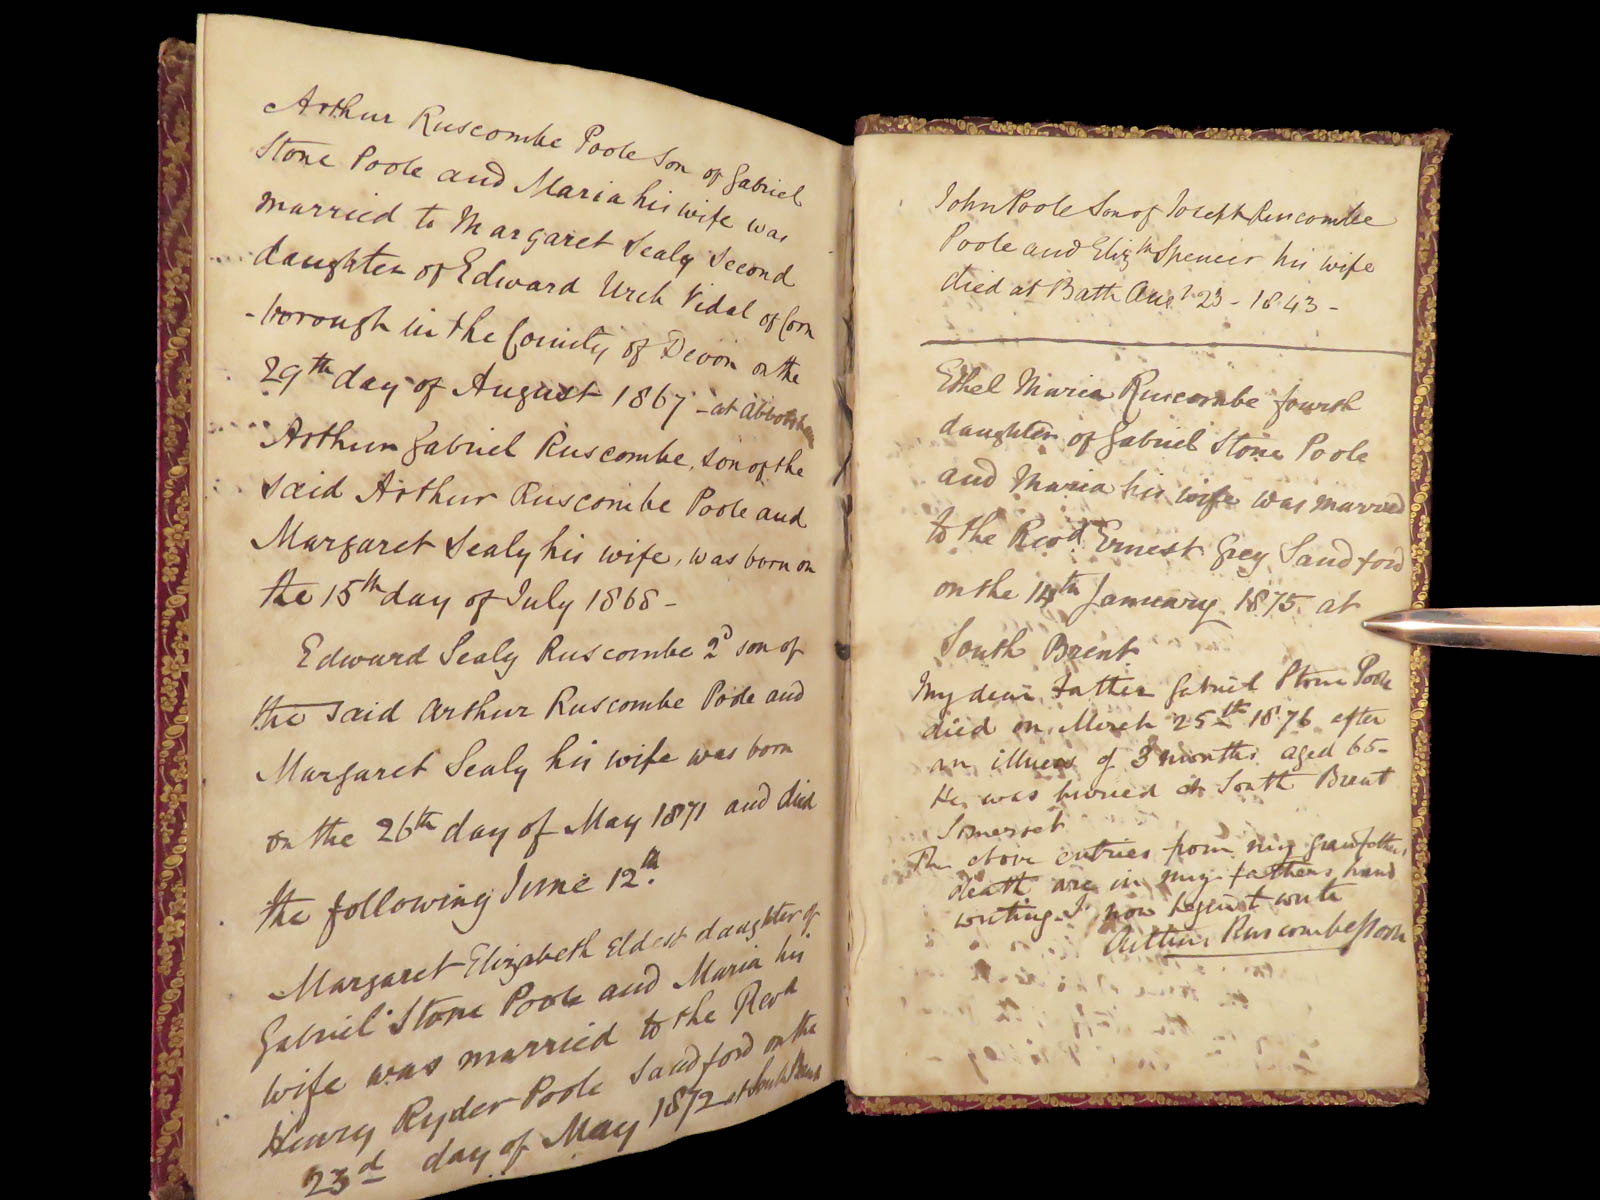 Arthur Ruscombe Poole Son of Gabriel
Stone Poole and Maria his wife was
married to Margaret Sealy Second
daughter of Edward Urch Vidal of Corn
-borough in the County of Devon on the
29th day of August 1867 - at Abbotsham
Arthur Gabriel Ruscombe, son of the
said Arthur Ruscombe Poole and
Margaret Sealy his wife, was born on
the 15th day of July 1868 -
Edward Sealy Ruscombe 2d son of
the said Arthur Ruscombe Poole and
Margaret Sealy his wife was born
on the 26th day of May 1871 and died
the following June 12th.
Margaret Elizabeth Eldest daughter of
Gabriel Stone Poole and Maria his
wife was married to the Revd
Henry Ryder Poole Sandford on the
23d day of May 1872 at South Brent
John Poole Son of Joseph Ruscombe
Poole and Elizth Spencer his wife
died at Bath Augt 23 - 1843 -
Ethel Maria Ruscombe fourth
daughter of Gabriel Stone Poole
and Maria his wife was married
to the Revd. Ernest Grey Sandford
on the 14th January 1875 at
South Brent
My dear Father Gabriel Stone Poole
died on March 25th 1876 after
an illness of 3 months aged 65-
He was buried at South Brent
Somerset
The above entries from my grandfathers
death are in my fathers hand
writing I now begin to write
Arthur Ruscombe Poole